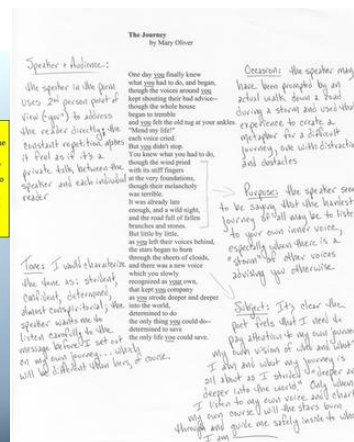 The Journey
by Mary Oliver
One day you finally knew
what you had to do, and began,
though the voices around you
kept shouting their bad advice--
though the whole house
began to tremble
and you felt the old tug at your ankles.
"Mend my life!"
each voice cried.
But you didn't stop.
You knew what you had to do,
though the wind pried
with its stiff fingers
at the very foundations,
though their melancholy
was terrible.
It was already late
enough, and a wild night,
and the road full of fallen
branches and stones.
But little by little,
as you left their voices behind,
the stars began to burn
through the sheets of clouds,
and there was a new voice
which you slowly
recognized as your own,
that kept you company
as you strode deeper and deeper
into the world,
determined to do
the only thing you could do--
determined to save
the only life you could save.
Speaker + Audience:
the speaker in the poem
uses 2nd person point of
view ("you") to address
the reader directly; the
constant repetition makes
it feel as if it's a
private talk between the
speaker and each individual
reader
Tone: I would characterize
the tone as: strident,
confident, determined,
almost conspiratorial; the
speaker wants me to
listen carefully to the
message before I set out
on my own journey... which
will be different than hers, of course.
Occasion: the speaker may
have been prompted by an
actual walk down a road
during a storm and used that
experience to create a
metaphor for a difficult
journey, one with distractions
and obstacles
Purpose: the speaker seems
to be saying that the hardest
journey of all may be to listen
to your own inner voice,
especially when there is a
"storm" of other voices
advising you otherwise.
Subject: It's clear the
poet feels that I need to
pay attention to my own journey,
my own vision of who and what
I am and what my journey is
all about as I "strode deeper and
deeper into the world." Only when
I listen to my own voice and chart
my own course will the stars burn
through and guide me safely inside to who
I am